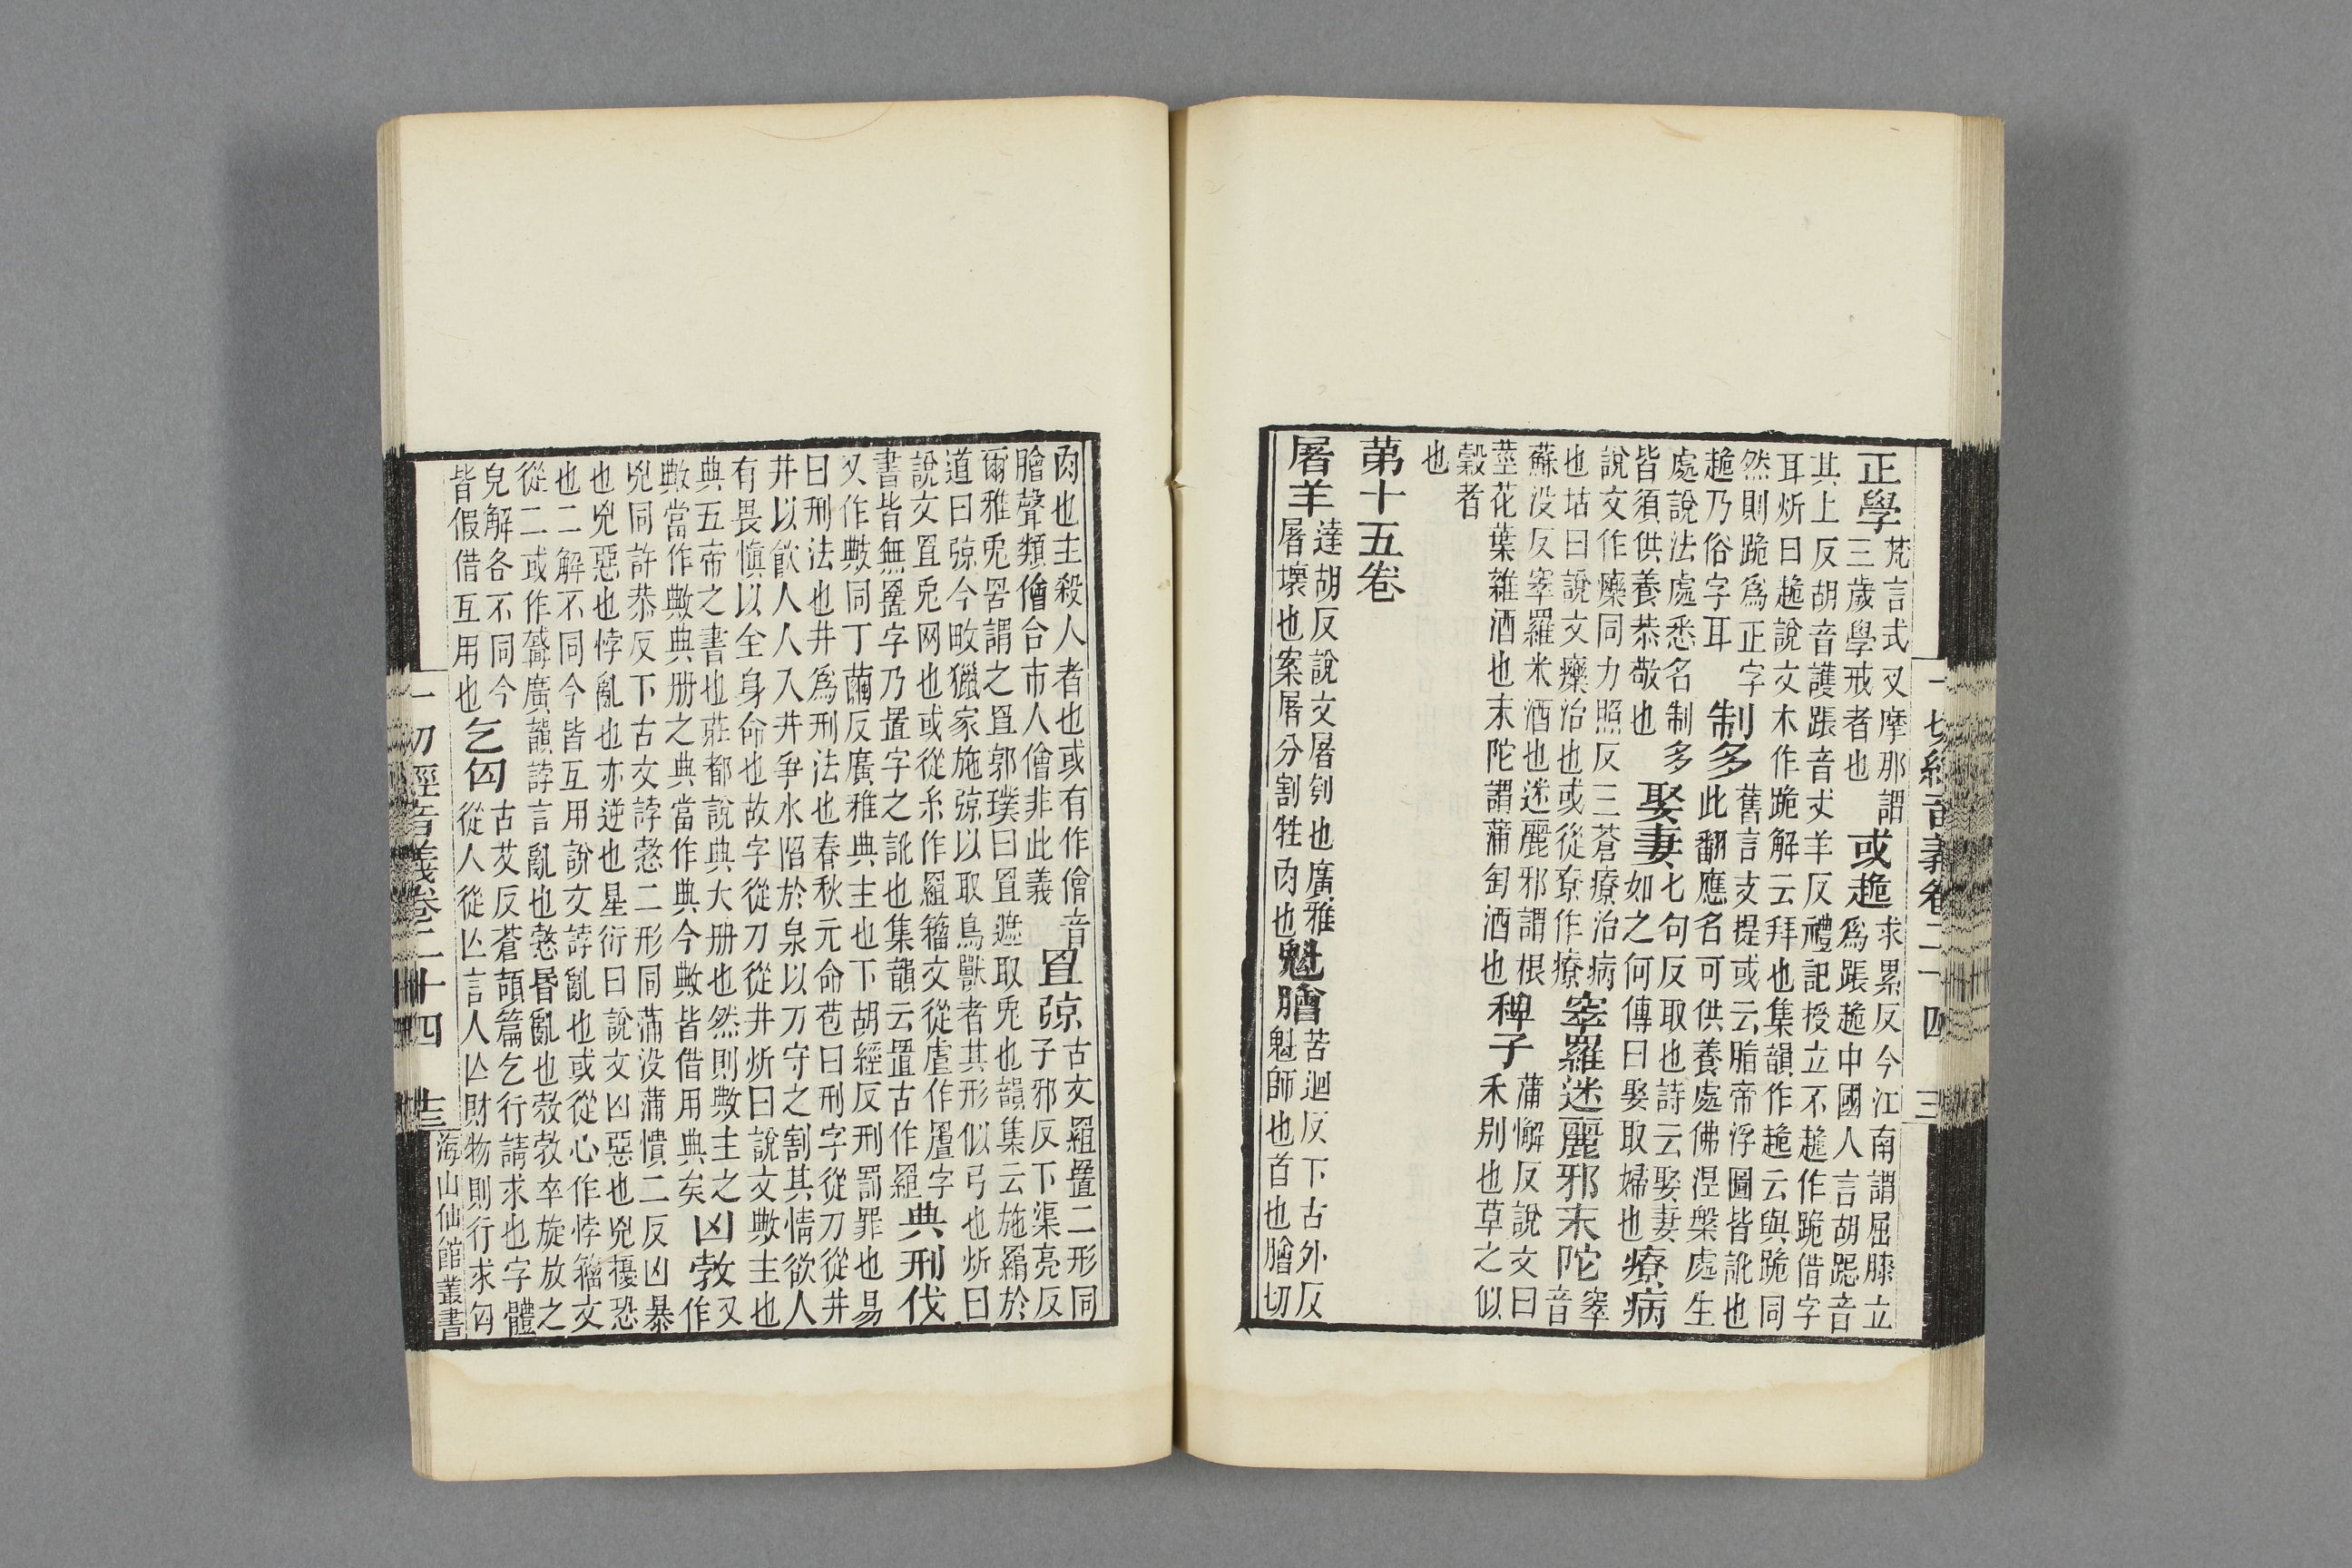 正學梵言式叉摩那謂三歲學戒者也或求累反今江南謂屈膝立為踞中國人言胡跽音
其上反胡音護音丈羊反禮記授立不作跪借字耳炘曰說文木作跪解云拜也集韻作云與跪同
然則跪為正字乃俗字耳制多舊言支提或云脂帝浮圖皆訛也此翻應名可供養處佛涅槃處生
處說法處悉名制多皆須供養恭敬也娶妻七句反取也詩云娶妻如之何傳曰娶取婦也療病
說文作藥同力照反三蒼療治病也坫曰說文治也或從尞作療窣羅迷麗邪末陀窣音
蘇没反窣羅米酒也迷麗邪謂根莖花葉雜酒也末陀謂蒲萄酒也稗子蒲懈反說文曰禾別也草之似
穀者也
第十五卷
屠羊達胡反說文屠刳也廣雅屠壞也案屠分割牲肉也魁膾苦迴反下古外反魁師也首也膾切
肉也主殺人者也或有作儈音膾聲類儈合市人儈非此義罝弶古文二形同子邪反下渠亮反
爾雅兎罟謂之罝郭璞曰罝遮取兎也韻集云施罥於道曰弶今畋獵家施弶以取鳥獸者其形似弓也炘曰
說文罝兎网也或從糸作籀文從虘作字書皆無字乃罝字之訛也集韻云罝古作典刑伐
又作敟同丁繭反廣雅典主也下胡經反刑罰罪也易曰刑法也井為刑法也春秋元命苞曰刑字從刀從井
井以飲人人入井爭水陷於泉以刀守之割其情欲人有畏慎以全身命也故字從刀從井炘曰說文敟主也
典五帝之書也莊都說典大册也然則敟主之敟當作敟典册之典當作典今敟皆借用典矣凶勃又作
兇同許恭反下古文誖憝二形同蒲没蒲憒二反凶暴也兇惡也悖亂也亦逆也星衍曰說文凶惡也兇擾恐
也二解不同今皆互用說文誖亂也或從心作悖籀文從二或作廣韻誖言亂也憝昬亂也敎卒旋放之
皃解各不同今皆假借互用也乞匃古艾反蒼頡篇乞行請求也字體從人從亾言人亾財物則行求匃
一切經音義卷二十四 三
一切經音義卷二十四 三
海山仙館叢書